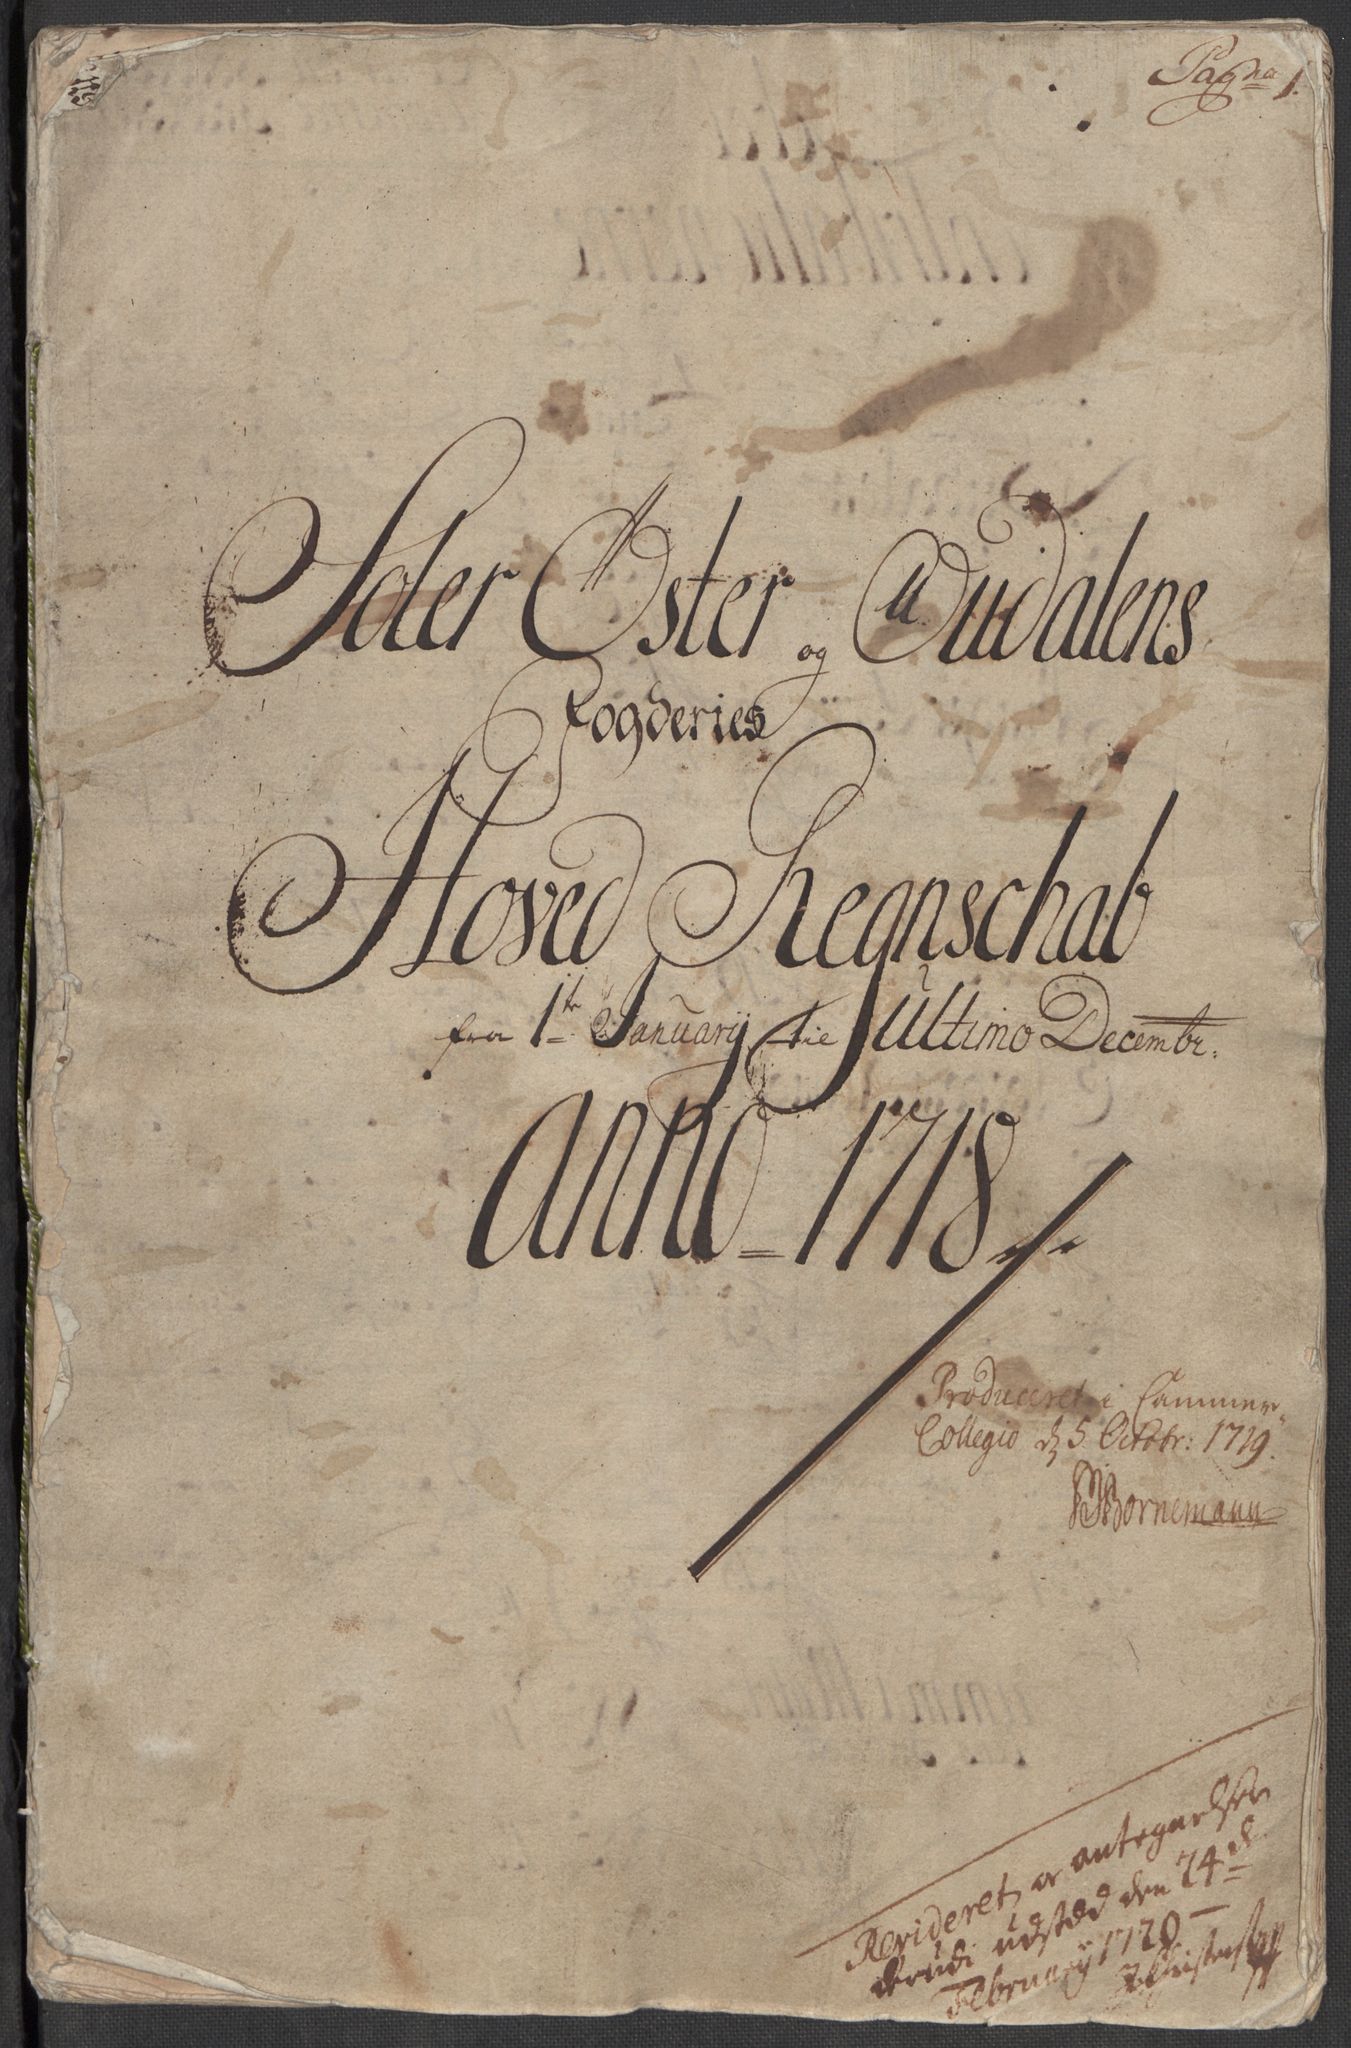 Pagna 1.
Soler Öster og Oudalens
Fogderies
Hoved Regnschab
fra 1te January til ultimo Decembr:
Anno = 1718
Produceret i Cammer
Collegio d 5 Octobr: 1719.
Bornemann
Revideret, or antegnelsen
udsted den 24d
February 1720